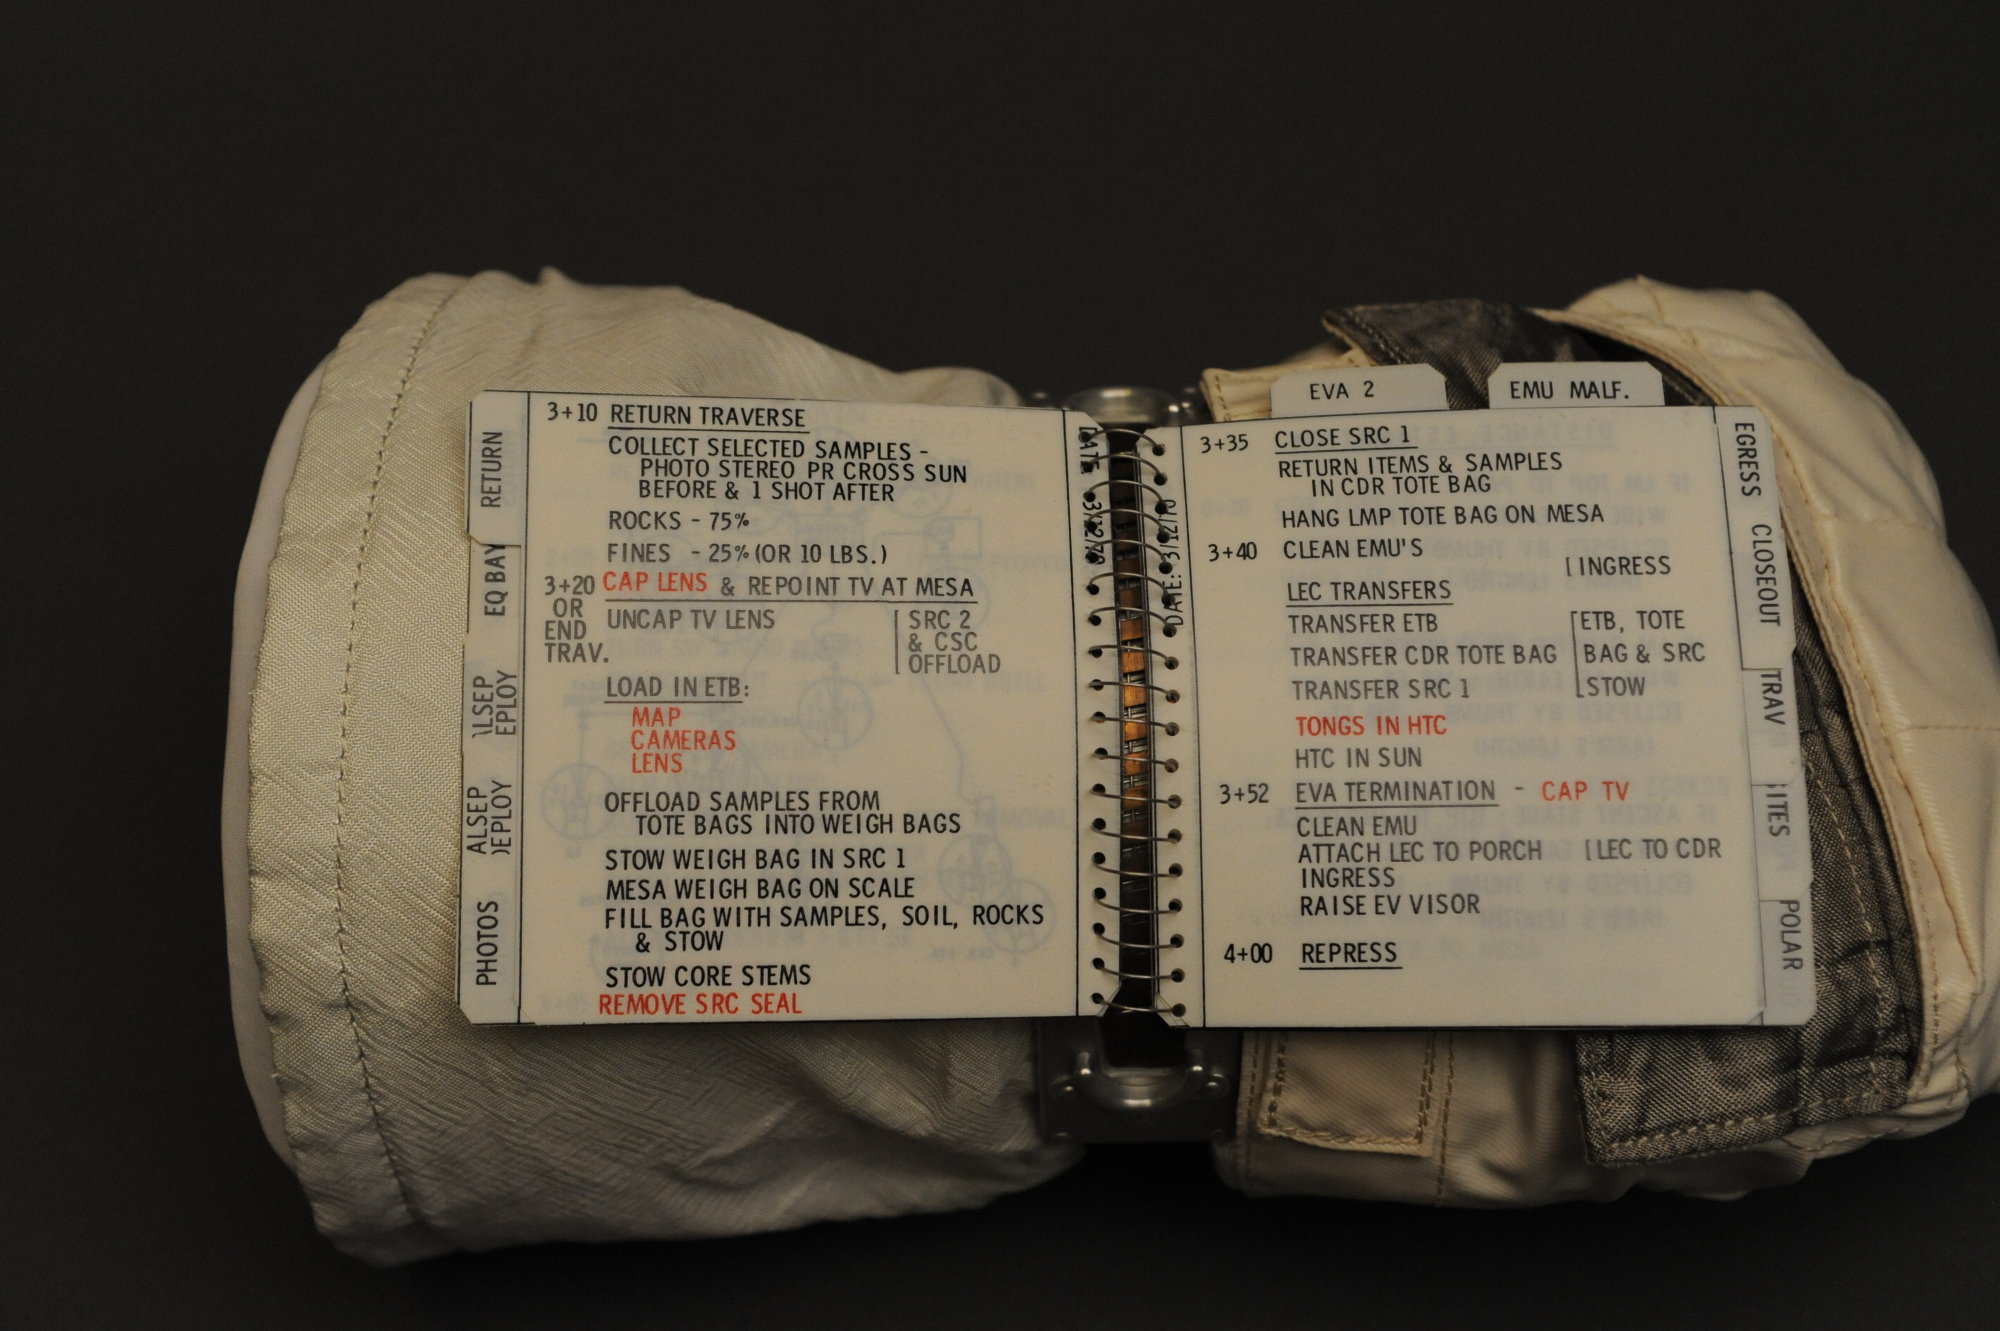 3+10 RETURN TRAVERSE
COLLECT SELECTED SAMPLES -
PHOTO STEREO PR CROSS SUN
BEFORE & 1 SHOT AFTER
ROCKS - 75%
FINES - 25% (OR 10 LBS.)
3+20 CAP LENS & REPOINT TV AT MESA
OR
END
TRAV.
UNCAP TV LENS
[SRC 2
& CSC
OFFLOAD
LOAD IN ETB:
MAP
CAMERAS
LENS
OFFLOAD SAMPLES FROM
TOTE BAGS INTO WEIGH BAGS
STOW WEIGH BAG IN SRC 1
MESA WEIGH BAG ON SCALE
FILL BAG WITH SAMPLES, SOIL, ROCKS
& STOW
STOW CORE STEMS
REMOVE SRC SEAL
RETURN
EQ BAY
ALSEP
DEPLOY
PHOTOS
EVA 2
EMU MALF.
3+35 CLOSE SRC 1
RETURN ITEMS & SAMPLES
IN CDR TOTE BAG
HANG LMP TOTE BAG ON MESA
3+40 CLEAN EMU'S
[INGRESS
LEC TRANSFERS
TRANSFER ETB [ETB, TOTE
TRANSFER CDR TOTE BAG BAG & SRC
TRANSFER SRC 1 STOW
TONGS IN HTC
HTC IN SUN
3+52 EVA TERMINATION - CAP TV
CLEAN EMU
ATTACH LEC TO PORCH [LEC TO CDR
INGRESS
RAISE EV VISOR
4+00 REPRESS
DATE: 3/12/70
EGRESS
CLOSEOUT
TRAV
POLAR